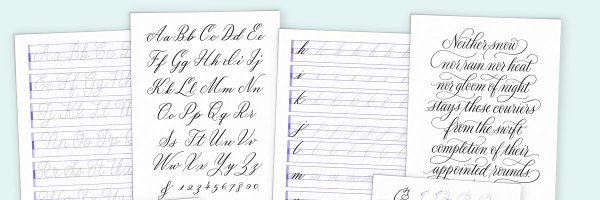 Aa Bb Cc
Ee Ff Gg
Nn Oo Pp
Aa Bb Cc Dd Ee
Ff Gg Hh Ii Jj
Kk Ll Mm Nn
Oo Pp Qq Rr
Ss Tt Uu Vv
Ww Xx Yy Zz
& 1234567890
h
i
k
j
l
m
Neither snow
nor rain nor heat
nor gloom of night
stays these couriers
from the swift
completion of their
appointed rounds